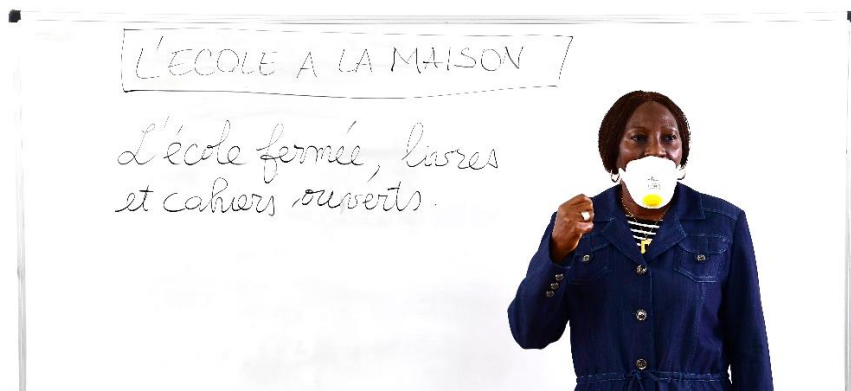 L'ECOLE A LA MAISON
L'école fermée, livres
et cahiers ouverts.